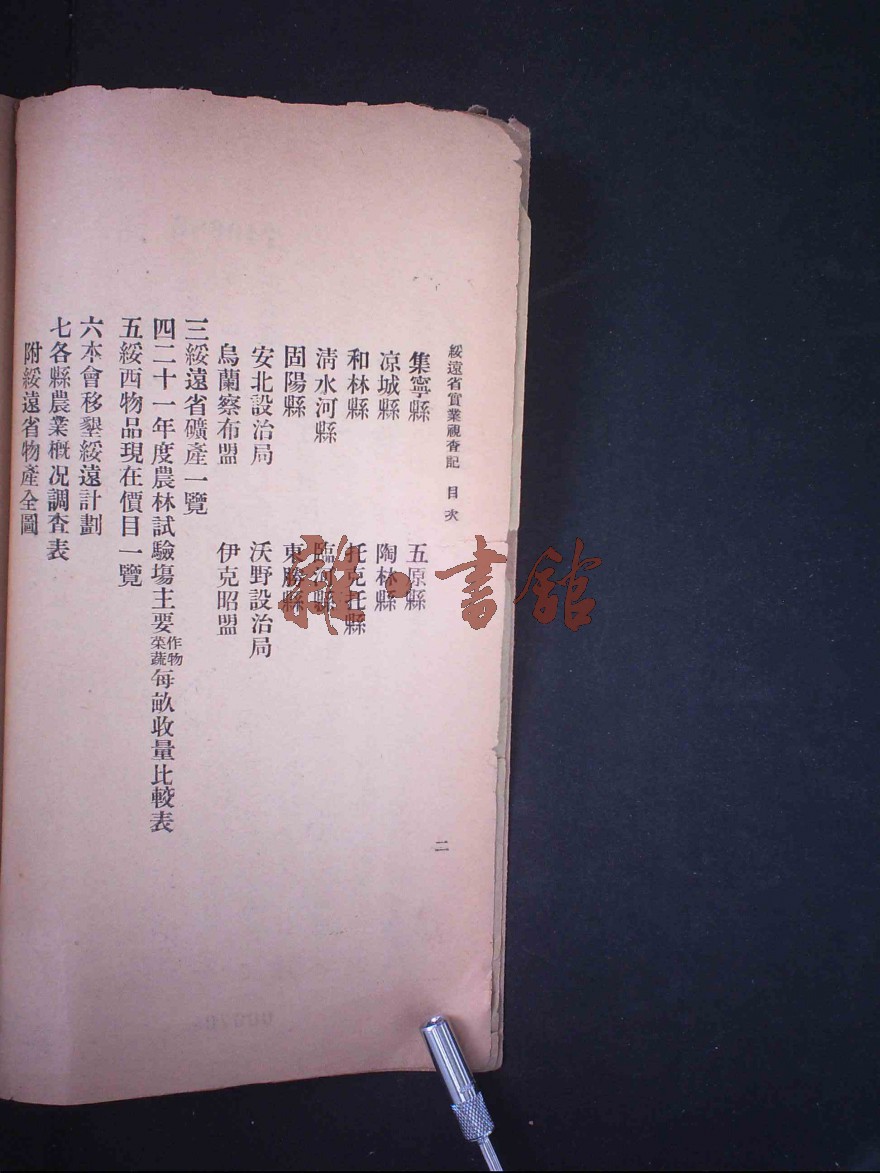 綏遠省實業視查記 目次
二
集寧縣 五原縣
凉城縣 陶林縣
和林縣 托克托縣
淸水河縣 臨河縣
固陽縣 東勝縣
安北設治局 沃野設治局
烏蘭察布盟 伊克昭盟
三綏遠省礦產一覽
四二十一年度農林試驗塲主要作物菜蔬每畝收量比較表
五綏西物品現在價目一覽
六本會移墾綏遠計劃
七各縣農業槪况調查表
附綏遠省物產全圖
書館